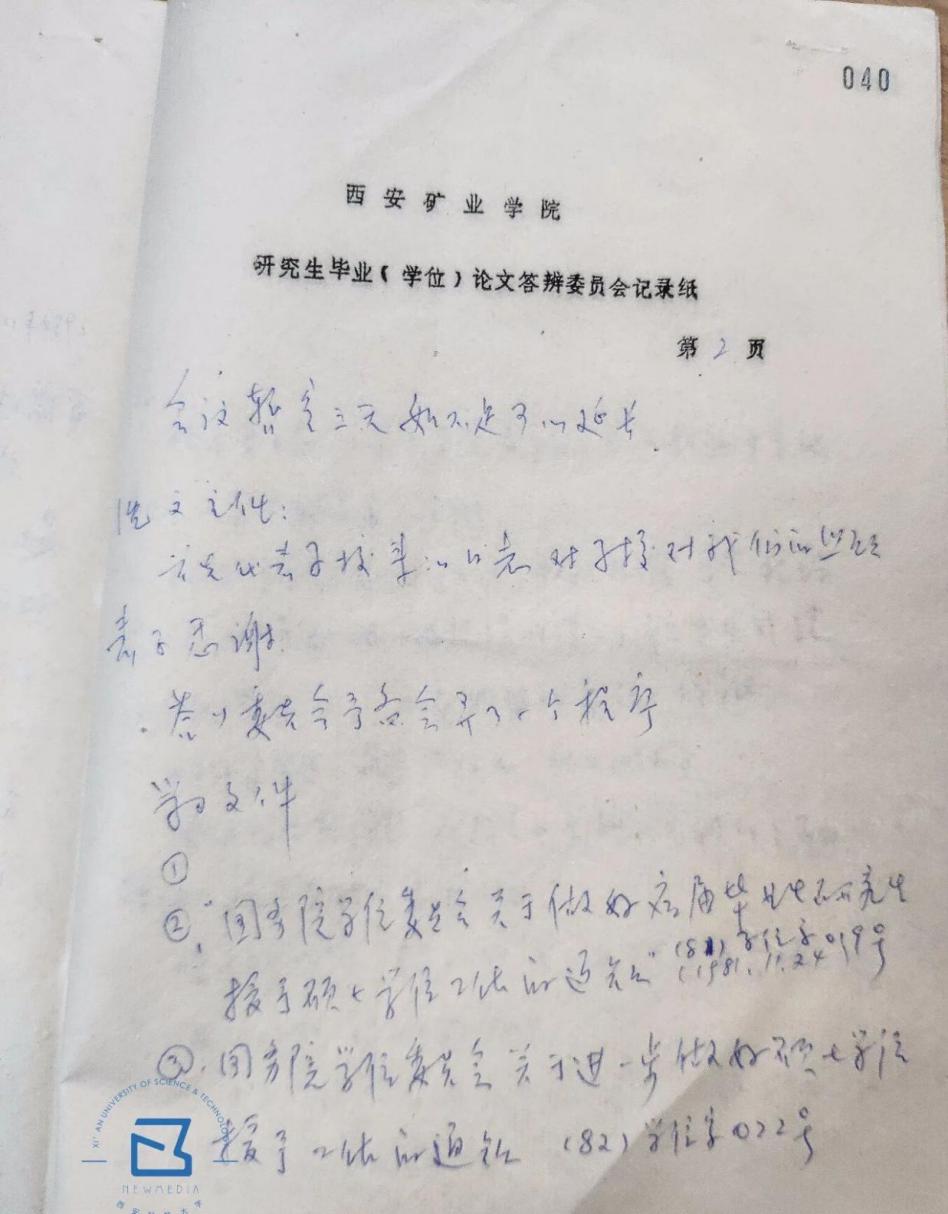 040
西安矿业学院
研究生毕业(学位)论文答辨委员会记录纸
第 2 页
会议暂定三天如不足可以延长
主任:
首先代表学校 对学校对我们的照顾
表示感谢
答辩委员会预备会 个程序
学习文件
①
②."国务院学位委员会关于做好应届毕业研究生
授予硕士学位工作的通知" (81)学位字019号
(1981.11.24
③.国务院学位委员会关于进一步做好硕士学位
授予工作的通知 (82)学位字022号
XI'AN UNIVERSITY OF SCIENCE & TECHNOLOGY
NEWMEDIA